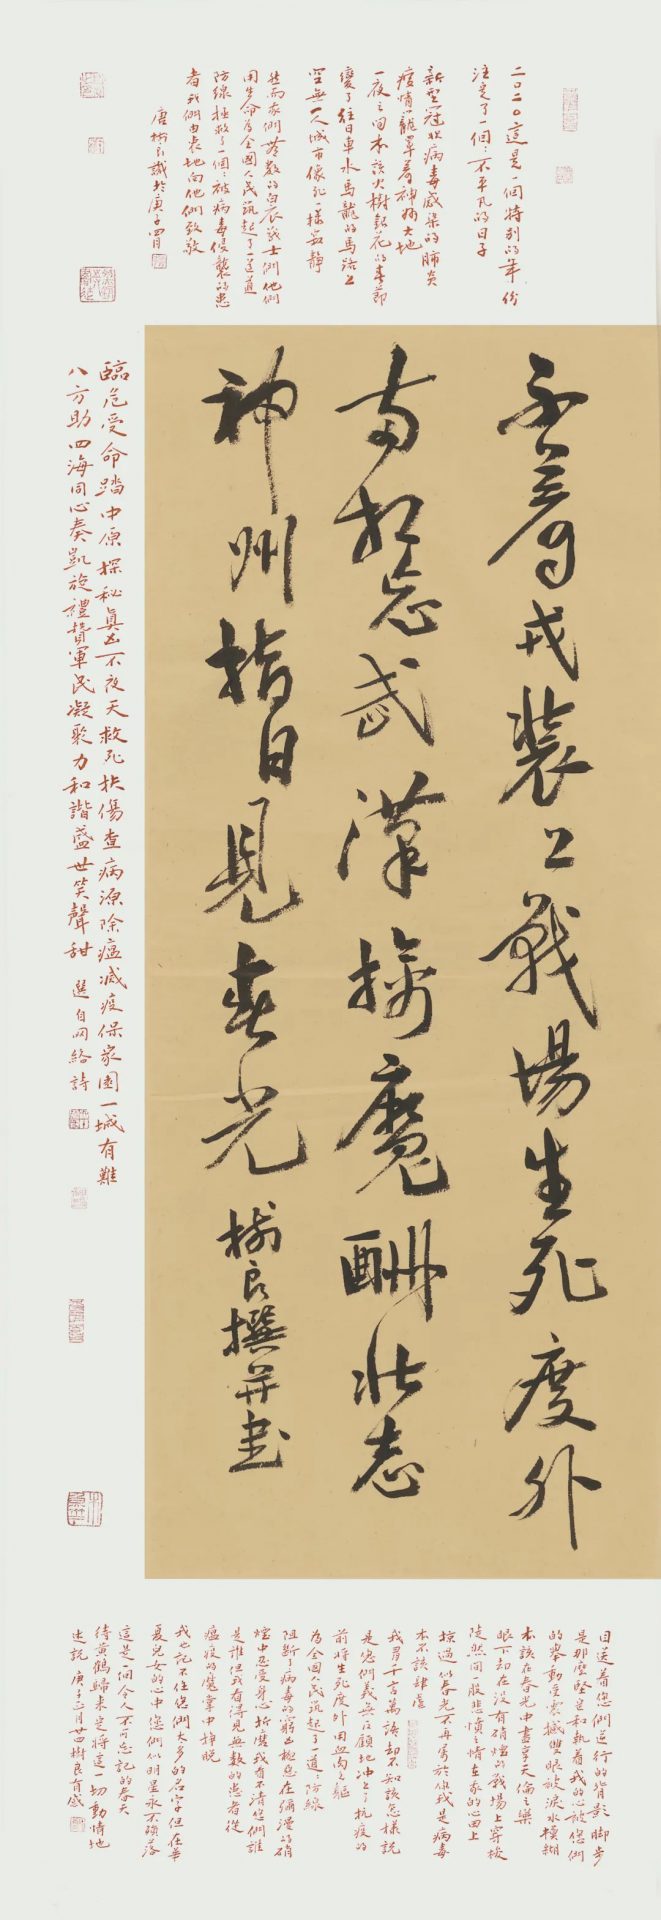 二〇二〇這是一個特別的年份
注定了一個不平凡的日子
新型冠狀病毒感染的肺炎
疫情籠罩着神州大地
一夜之間本該火樹銀花的春節
變了往日車水馬龍的馬路上
空無一人城市像死一樣寂靜
然而無數的白衣戰士們他們
用生命為全國人民筑起了一道道
防線拯救了一個個被病毒侵襲的患
者我們由衷地向他們致敬
唐樹良識於庚子四月
不著戎裝上戰場生死度外
兩相忘武漢擒魔酬壯志
神州指日見春光 樹良撰并書
臨危受命踏中原探秘真凶不夜天救死扶傷查病源除瘟滅疫保家園一城有難
八方助四海同心奏凱旋禮贊軍民凝聚力和諧盛世笑聲甜 選自网絡詩
目送着您們逆行的背影脚步
是那麼堅定和執着我的心被您們
的舉動受震撼雙眼被淚水模糊
本該在春光中盡享天倫之樂
眼下却在没有硝烟的戰場上穿梭
陡然間一股悲憤之情在我的心田上
掠過似春光不再屬於你我是病毒
本不該肆虐
我尋千言萬語却不知該怎樣說
是您們義無反顧地冲上了抗疫的
前將生死度外用血肉之軀
為全國人民筑起了一道道防線
阻斷了病毒的窮凶極惡在彌漫的硝
烟中忍受身心折磨我看不清您們誰
是誰但我看得見無數的患者從
瘟疫的魔掌中掙脱
我也記不住您們大多的名字但在華
夏兒女的心中您們似明星永不殞落
這是一個令人不可忘記的春天
待黃鶴歸來定將這一切動情地
述說 庚子二月廿四樹良有感